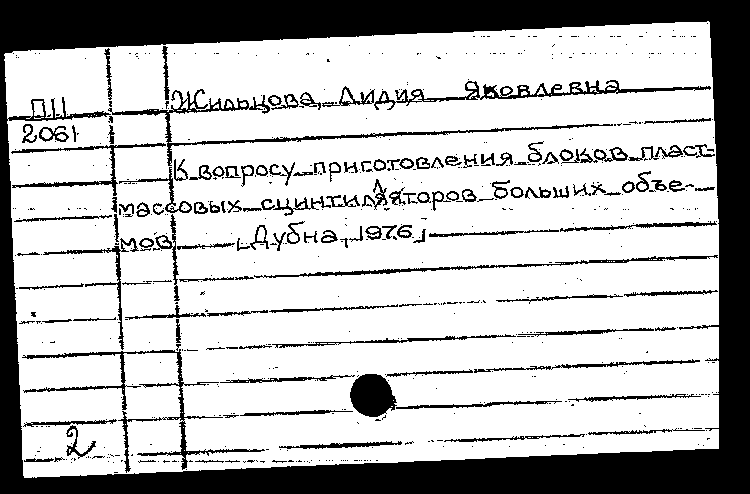 П11 Жильцова, Лидия Яковлевна
2061
К вопросу приготовления блоков пласт-
массовых сцинтилляторов больших объе-
мов [Дубна, 1976]
2